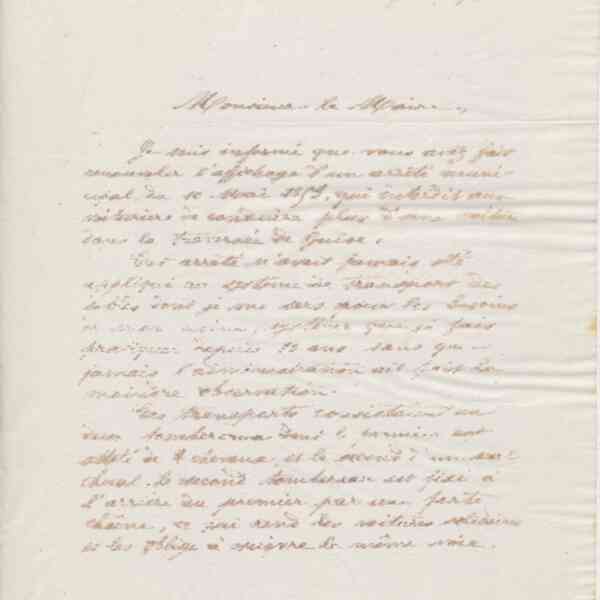 Monsieur le Maire,
Je suis informé que vous avez fait
renouveler l'affichage d'un arrêté muni-
cipal du 10 Mai 1853, qui interdit aux
voituriers de conduire plus d'une voiture
dans la traversée de Guise.
Cet arrêté n'avait jamais été
appliqué au système de transport des
sables dont je me sers pour les besoins
de mon usine, système que je fais
pratiquer depuis ans sans que
jamais l'administration ait fait la
moindre observation.
Ces transports consistent en
deux tombereaux dont le premier est
attelé de 4 chevaux et le second d'un seul
cheval. Le second tombereau est fixé à
l'arrière du premier par une forte
chaîne, ce qui rend les voitures solidaires
et les oblige à suivre la même voie.